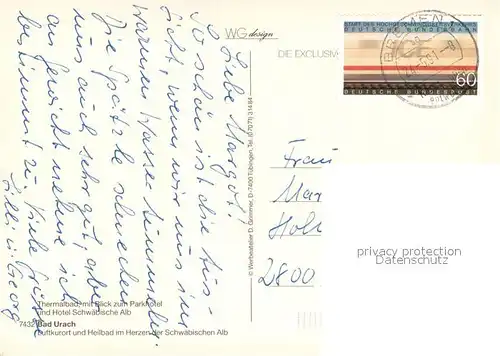 Liebe Margot!
So schön ist die Aus-
sicht, wenn wir uns im
warmen Wasser tummeln.
Die Spätzle schmecken
uns auch sehr gut, aber
an Gewicht nehme ich
bestimmt zu. Viele Grüße
Lilli u. Georg
WG design
DIE EXCLUSIV
START DES HOCHGESCHWINDIGKEITSVERKEHRS
DEUTSCHE BUNDESBAHN
60
DEUTSCHE BUNDESPOST
BREMEN
© Werbeatelier D. Gommer, D-7400 Tübingen, Tel. (07071) 31484
Frau
Mar
Holl
2800
privacy protection
DATENSCHUTZ
Thermalbad, mit Blick zum Parkhotel
und Hotel Schwäbische Alb
7432 Bad Urach
Luftkurort und Heilbad im Herzen der Schwäbischen Alb